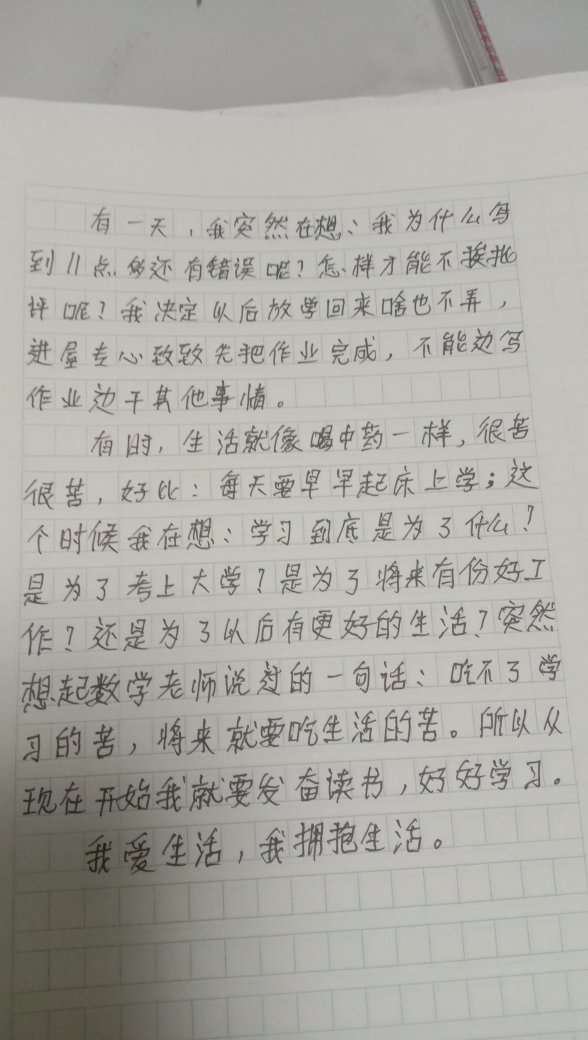 有一天，我突然在想：我为什么写
到11点多还有错误呢？怎样才能不挨批
评呢？我决定以后放学回来啥也不弄，
进屋专心致致先把作业完成，不能边写
作业边干其他事情。
有时，生活就像喝中药一样，很苦
很苦，好比：每天要早早起床上学；这
个时候我在想：学习到底是为了什么？
是为了考上大学？是为了将来有份好工
作？还是为了以后有更好的生活？突然
想起数学老师说过的一句话：吃不了学
习的苦，将来就要吃生活的苦。所以从
现在开始我就要发奋读书，好好学习。
我爱生活，我拥抱生活。